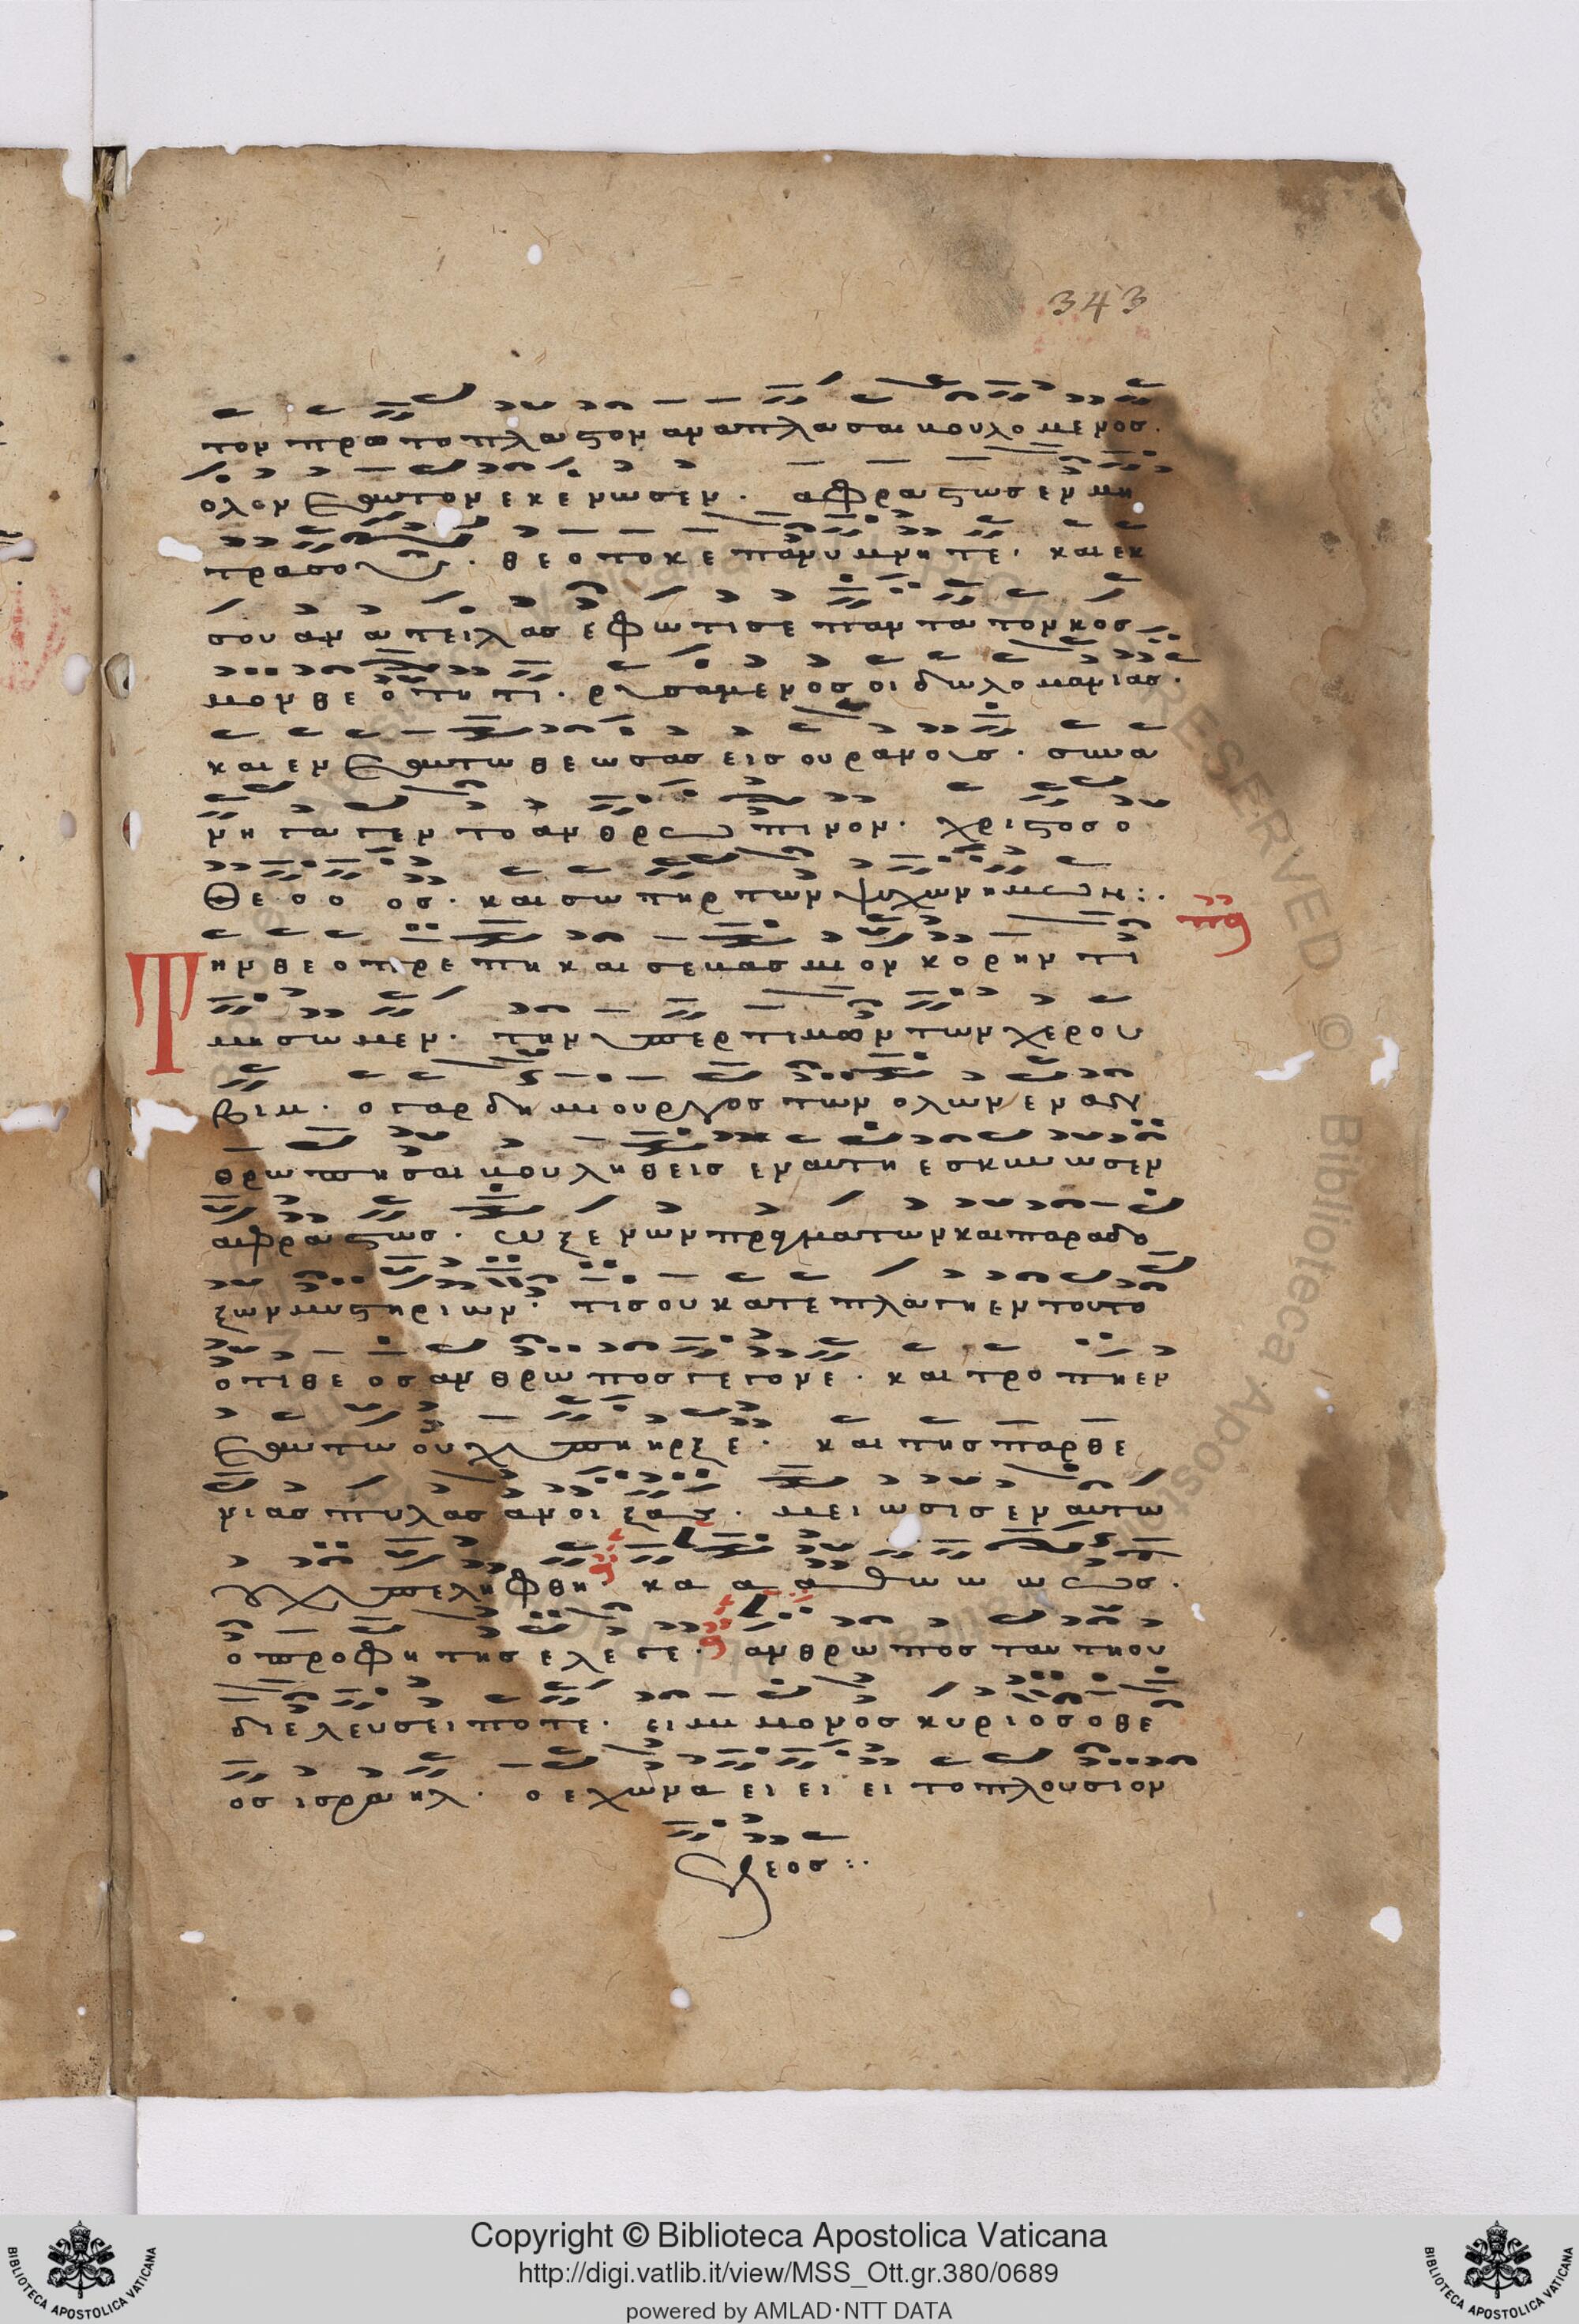 343
τον πρωτοπλαστον αναπλασαι βουλομενος.
ολον εαυτον εκενωσεν. αφραστως εν μη
τρα σου. θεοτοκε πανυμνητε. και εκ
σου ανατειλας εφωτισε παντα τον κοσ
μον θεοτητι. ρυσαμενος ειδωλομανιας.
και εν εαυτω θεωσας εις ουρανους. συνα
νηγαγεν το ανθρωπινον. χριστος ο
θεοο ος. και σωτηρ των ψυχων ημων:.
πλ
Την θεοπρεπη και σεβασμιον κορην τι
μησωμεν. την υπερτιμον των χερου
βιμ. ο γαρ δημιουργος των ολων εναν
θρωπησαι βουληθεις εν αυτη εσκηνωσεν
αφραστως. ω ξενων πραγματων και παραδο
ξων μυστηριων. τις ου κατεπλαγη εν τουτο
οτι θεος ανθρωπος γεγονε. και τροπη εν
εαυτω ουχ υπηρξε. και της παρθε
νιας πυλας ανοιξας. μειωσις εν αυτω
ουχ υπεληφθη. κα α α θω ω ω ως.
ο προφητης ελεγε. ανθρωπος ταυτη ου
διελευσει ποτε. ει μη μονος κυριος ο θε
ος ισραηλ. ο εχωνα ει ει ει το πλουσιον
ελεος:.
Copyright © Biblioteca Apostolica Vaticana
http://digi.vatlib.it/view/MSS_Ott.gr.380/0689
powered by AMLAD·NTT DATA
BIBLIOTECA APOSTOLICA VATICANA
BIBLIOTECA APOSTOLICA VATICANA